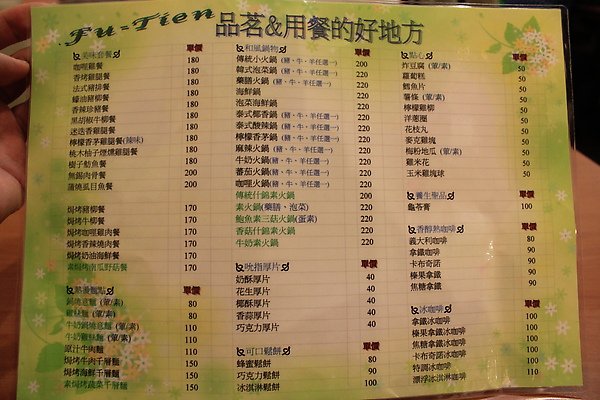 Fu-Tien 品茗&用餐的好地方
美味套餐 單價
咖哩雞餐 180
香烤雞腿餐 180
法式豬排餐 180
蠔油豬柳餐 180
香辣珍豬餐 180
黑胡椒牛柳餐 180
迷迭香雞腿餐 180
檸檬香茅雞腿餐(辣味) 180
桃木柚子煙燻雞腿餐 200
樹子魴魚餐 200
無錫肉骨餐 200
蒲燒虱目魚餐 200
焗烤豬柳餐 170
焗烤牛柳餐 170
焗烤咖哩雞肉餐 170
焗烤香辣燒肉餐 170
焗烤奶油海鮮餐 170
素焗烤南瓜野菇餐 170
單價
鍋燒意麵 (葷/素) 80
雞絲麵 (葷/素) 80
牛奶鍋燒意麵 (葷/素) 110
牛奶雞絲麵 (葷/素) 110
原汁牛肉麵 110
焗烤牛肉千層麵 150
焗烤海鮮千層麵 150
素焗烤蔬菜千層麵 150
和風鍋物 單價
傳統小火鍋 (豬、牛、羊任選一) 200
韓式泡菜鍋 (豬、牛、羊任選一) 220
藥膳火鍋 (豬、牛、羊任選一) 220
海鮮鍋 220
泡菜海鮮鍋 220
泰式椰香鍋 (豬、牛、羊任選一) 220
泰式酸辣鍋 (豬、牛、羊任選一) 220
檸檬香茅鍋 (豬、牛、羊任選一) 220
麻辣火鍋 (豬、牛、羊任選一) 220
牛奶火鍋 (豬、牛、羊任選一) 220
蕃茄火鍋 (豬、牛、羊任選一) 220
咖哩火鍋 (豬、牛、羊任選一) 220
傳統什錦素火鍋 220
素火鍋(藥膳、泡菜) 220
鮑魚素三菇火鍋(蛋素) 220
香菇什錦素火鍋 220
牛奶素火鍋 220
吮指厚片 單價
奶酥厚片 40
花生厚片 40
椰酥厚片 40
香蒜厚片 40
巧克力厚片 40
可口鬆餅 單價
蜂蜜鬆餅 80
巧克力鬆餅 90
冰淇淋鬆餅 100
點心 單價
炸豆腐 (葷/素) 50
蘿蔔糕 50
鱈魚片 50
薯條 (葷/素) 50
檸檬雞柳 50
洋蔥圈 50
花枝丸 50
麥克雞塊 50
梅粉地瓜 (葷/素) 50
雞米花 50
玉米雞塊球 50
養生聖品 單價
龜苓膏 100
香醇熱咖啡 單價
義大利咖啡 80
拿鐵咖啡 90
卡布奇諾 90
榛果拿鐵 90
焦糖拿鐵 90
冰咖啡 單價
拿鐵冰咖啡 100
榛果拿鐵冰咖啡 100
焦糖拿鐵冰咖啡 100
卡布奇諾冰咖啡 100
特調冰咖啡 100
漂浮冰咖啡 110